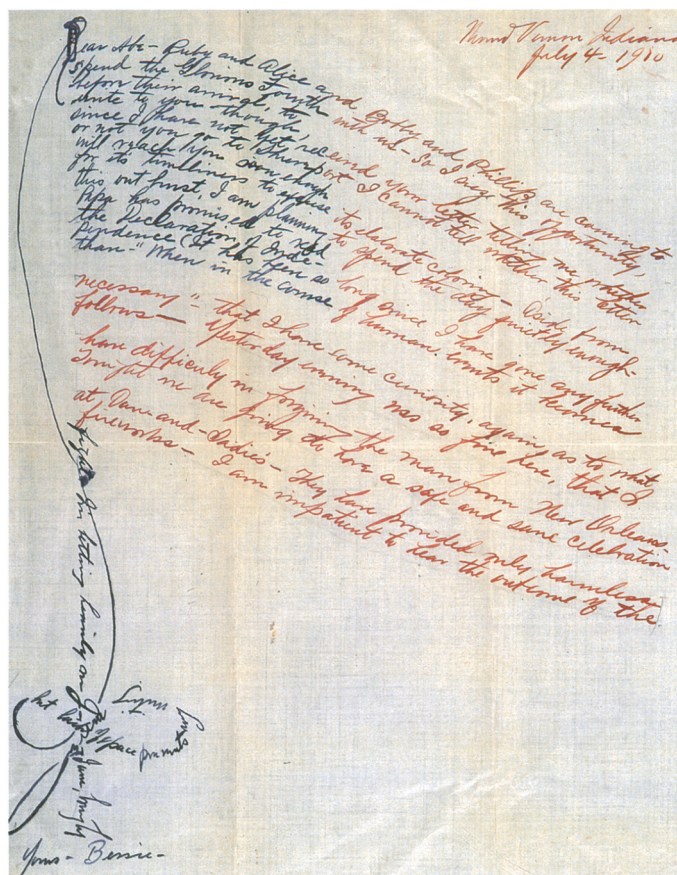 Mount Vernon Indiana
July 4 - 1910
Dear Abe - Ruby and Alice and Bobby and Phillip are coming to
spend the Glorious Fourth with us - So I seize this opportunity,
before their arrival, to
write to you though,
since I have not yet received your letter telling me whether
or not you go to Shreveport I cannot tell whether this letter
will reach you soon enough
for its timeliness to excuse its elaborate coloring - Aside from
this out burst, I am planning to spend the day quietly enough -
Papa has promised to read
the Declaration of Inde-
pendence (It has been so long since I have gone any further
than - "When in the course of human events it becomes
necessary" that I have some curiosity, again, as to what
follows - Yesterday evening was so fine here, that I
have difficulty in forgiving the man from New Orleans -
Tonight we are going to have a safe and sane celebration
at Dave and Sadie's - They have provided only harmless
fireworks - I am impatient to hear the outcome of the
fight - I'm betting heavily on
Space prevents
Yours - Bessie -